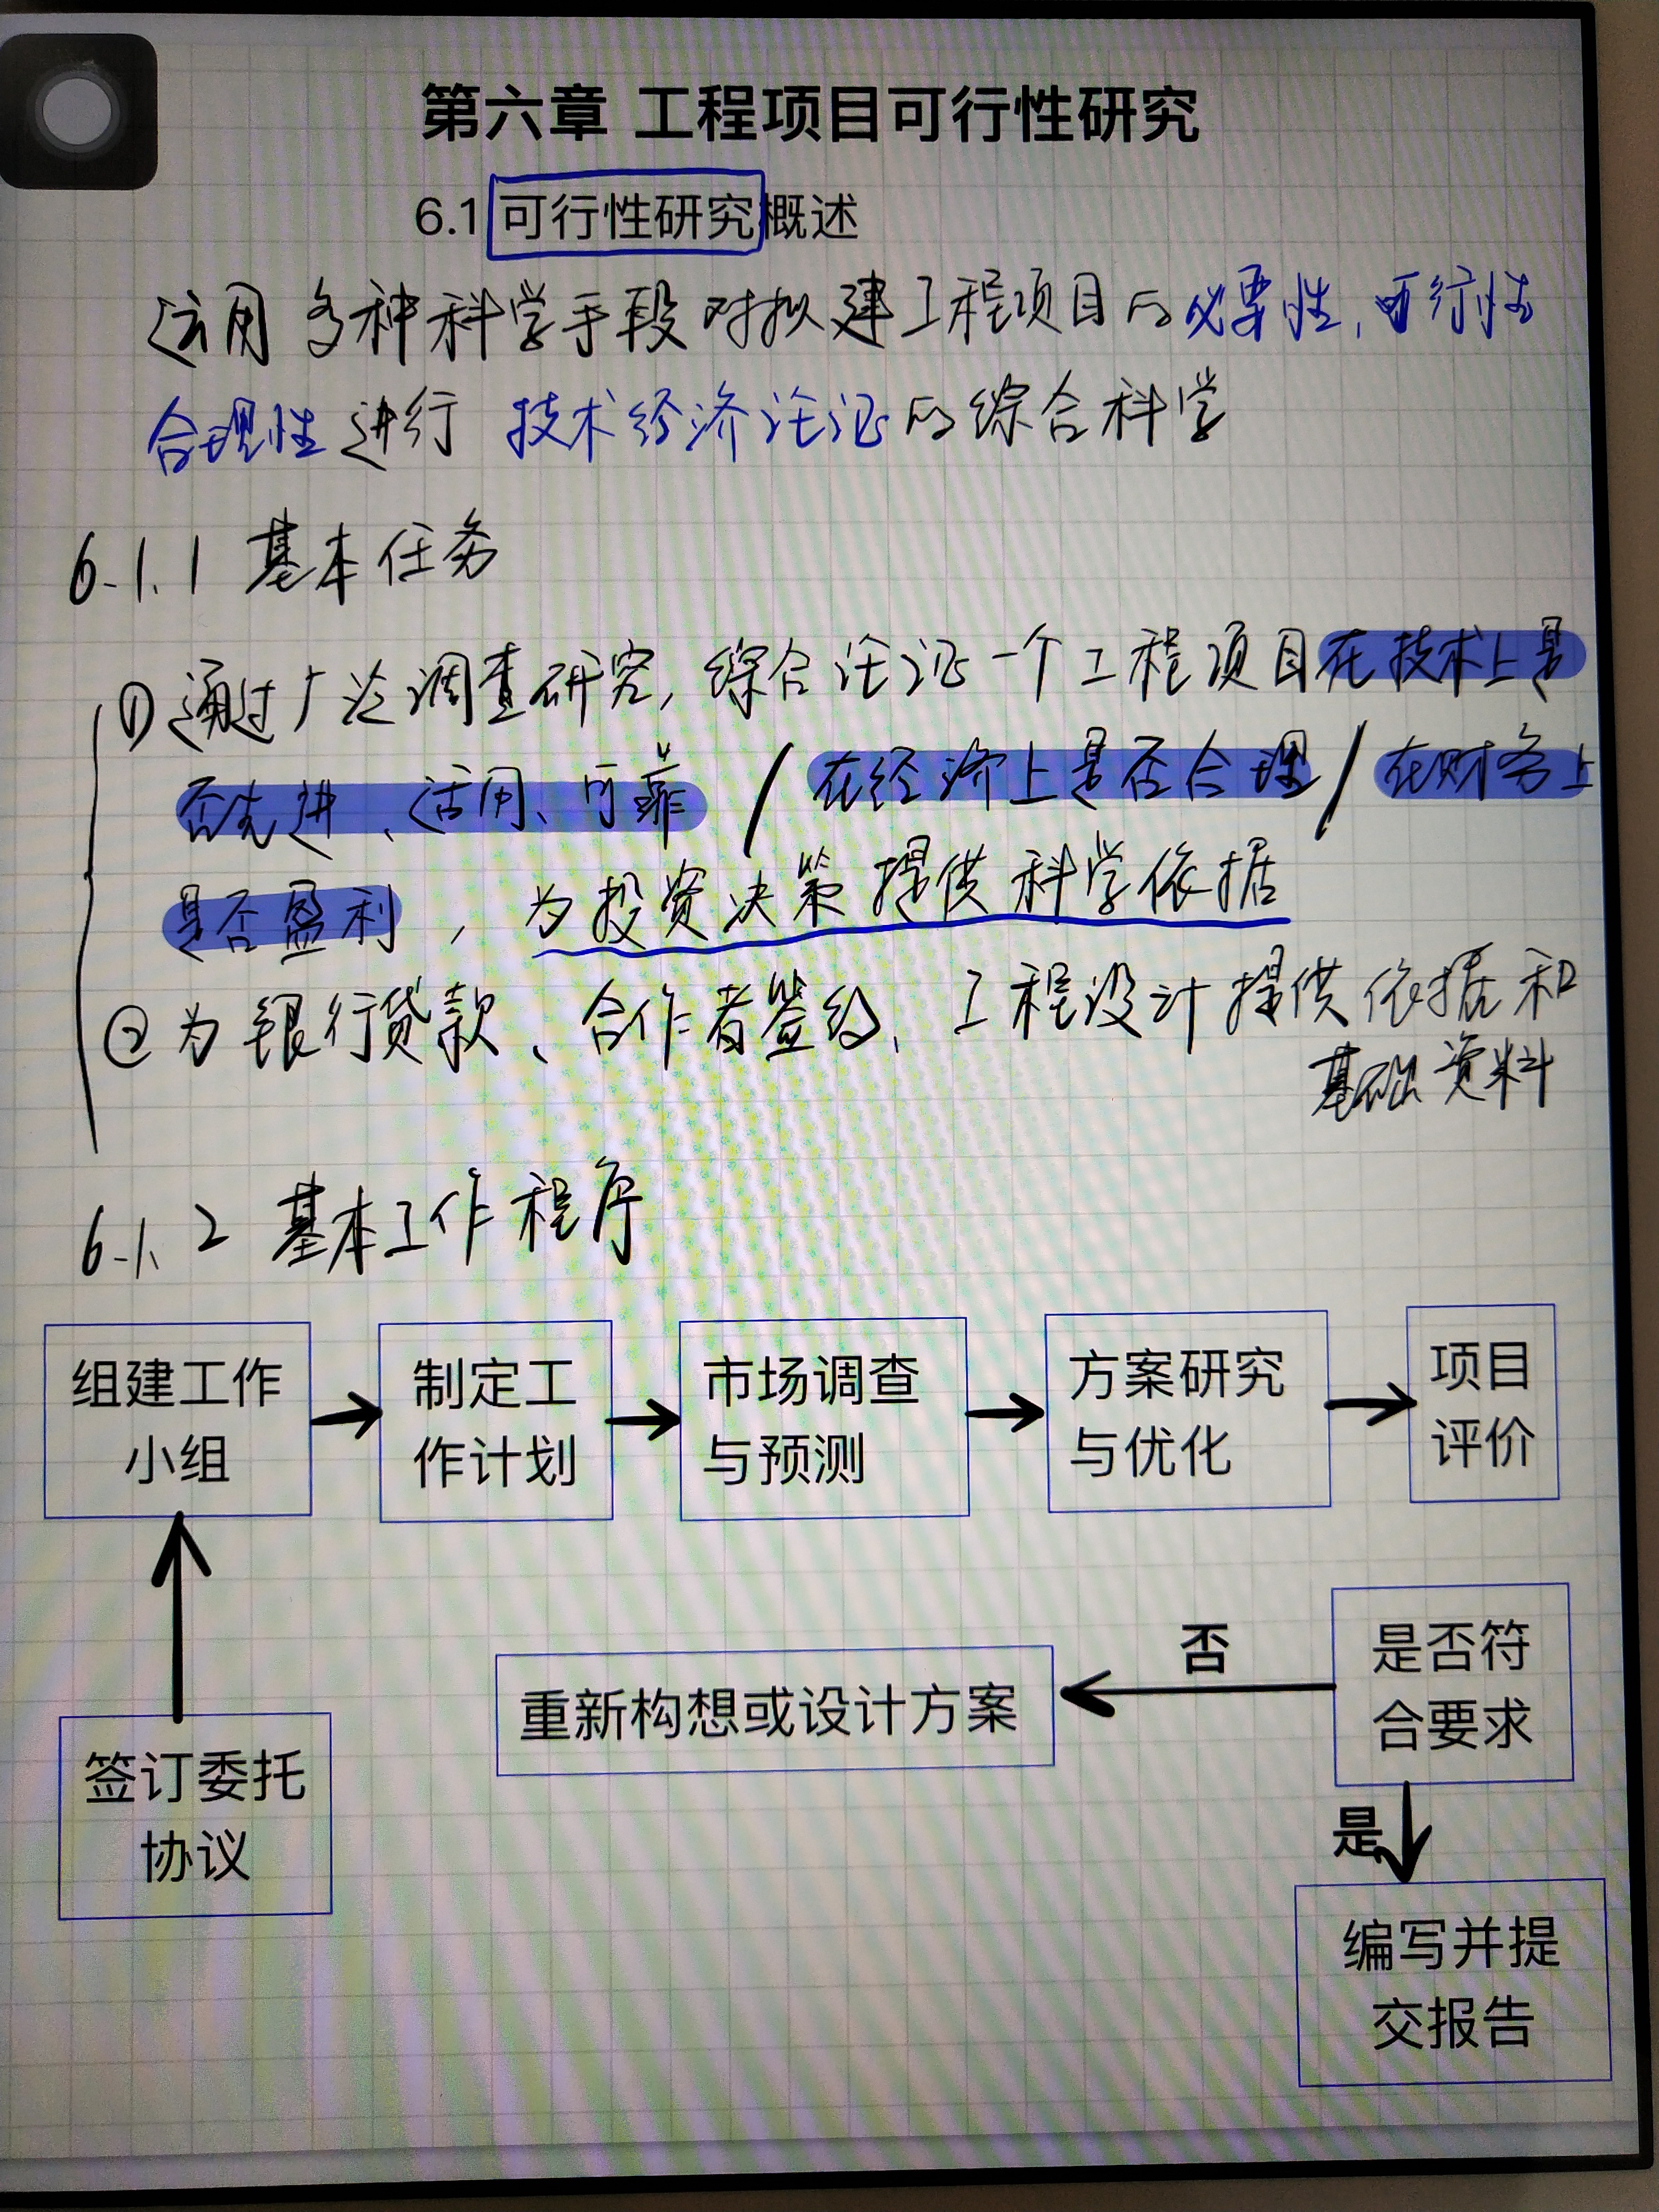 第六章 工程项目可行性研究
6.1 可行性研究概述
运用多种科学手段对拟建工程项目的必要性、可行性
合理性进行 技术经济论证的综合科学
6.1.1 基本任务
①通过广泛调查研究, 综合论证一个工程项目在技术上是
否先进、适用、可靠 / 在经济上是否合理 / 在财务上
是否盈利, 为投资决策提供科学依据
②为银行贷款、合作者签约、工程设计提供依据和
基础资料
6.1.2 基本工作程序
组建工作
小组
制定工
作计划
市场调查
与预测
方案研究
与优化
项目
评价
是否符
合要求
否
重新构想或设计方案
签订委托
协议
是
编写并提
交报告